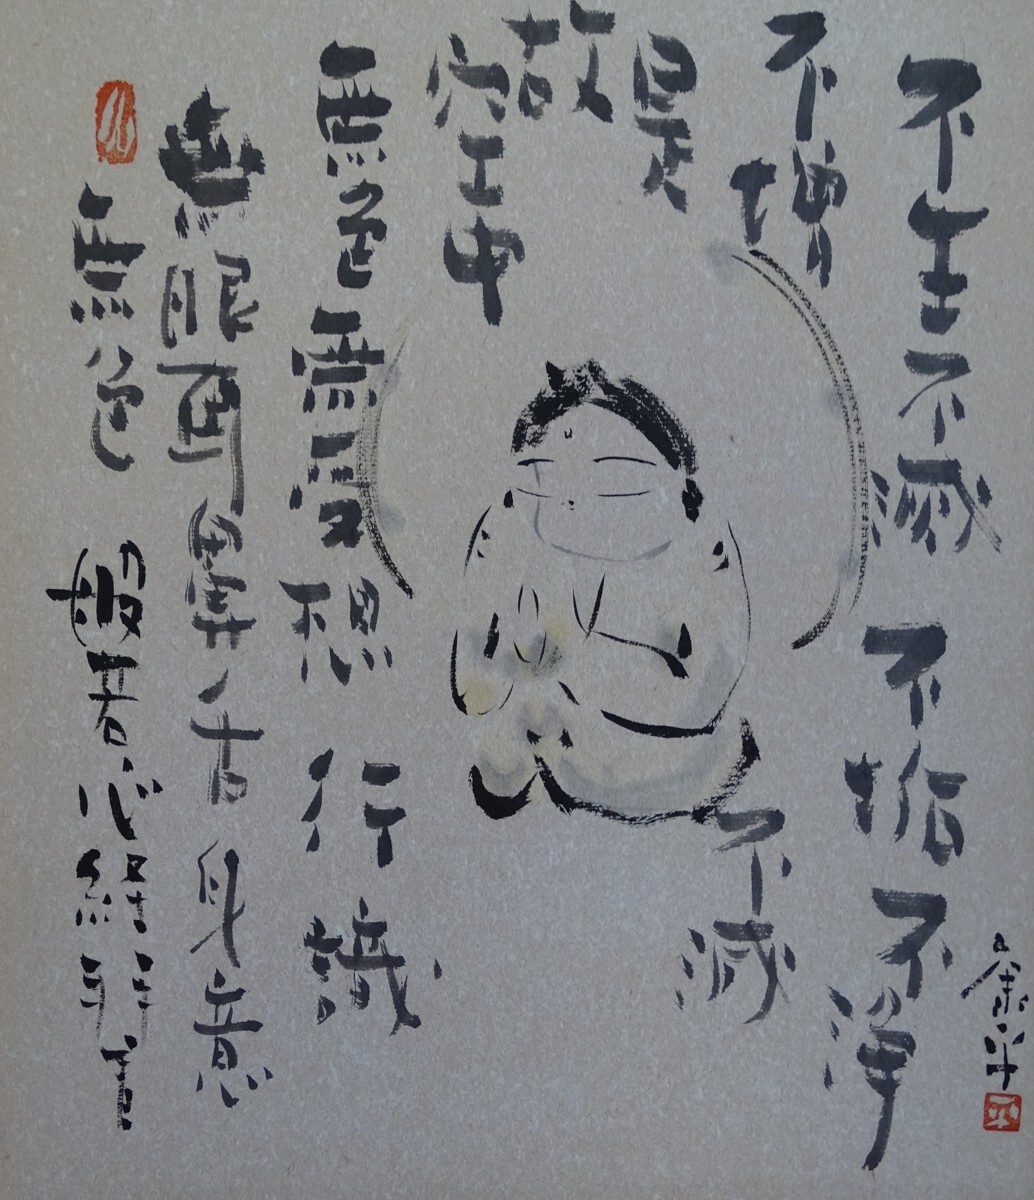 不生不滅不垢不浄
不増不減
是故空中
無色無受想行識
無眼耳鼻舌身意
無色 般若心経